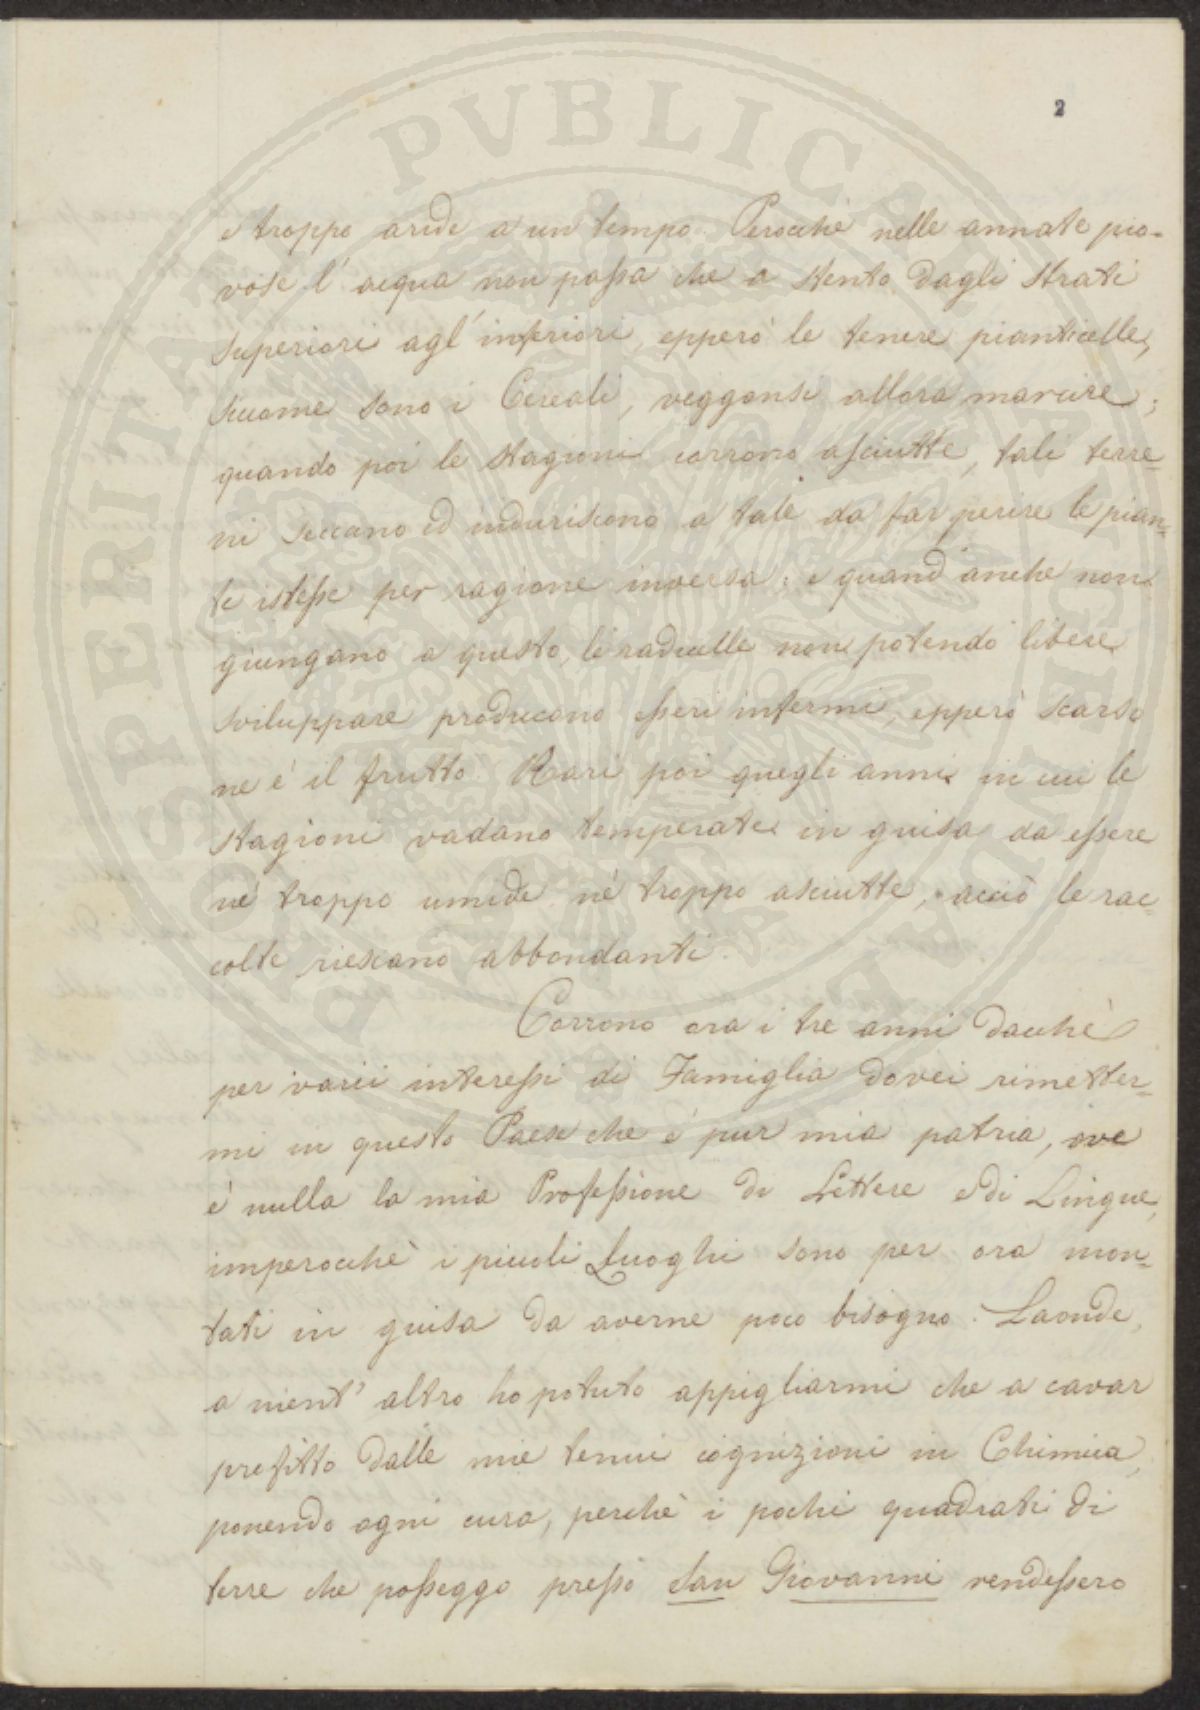 2
e troppo aride a un tempo. Perocchè nelle annate pio-
vose l'acqua non passa che a stento dagli strati
superiori agl'inferiori, epperò le tenere pianticelle,
siccome sono i Cereali, veggonsi allora marcire;
quando poi le stagioni corrono asciutte, tali terre-
ni seccano ed induriscono a tale da far perire le pian-
te istesse per ragione inversa; e quand'anche non
giungano a questo, le radicelle non potendo libere
sviluppare producono esseri infermi, epperò scarso
ne è il frutto. Rari poi quegli anni in cui le
stagioni vadano temperate in guisa da essere
nè troppo umide nè troppo asciutte, acciò le rac-
colte riescano abbondanti.
Corrono ora i tre anni dacchè
per varii interessi di Famiglia dovei rimetter-
mi in questo Paese che è pur mia patria, ove
è nulla la mia Professione di Lettere e di Lingue,
imperocchè i piccoli Luoghi sono per ora mon-
tati in guisa da averne poco bisogno. Laonde,
a nient'altro ho potuto appigliarmi che a cavar
profitto dalle mie tenui cognizioni in Chimica,
ponendo ogni cura, perchè i pochi quadrati di
terre che posseggo presso San Giovanni rendessero
PROSPERITATI PVBLICAE